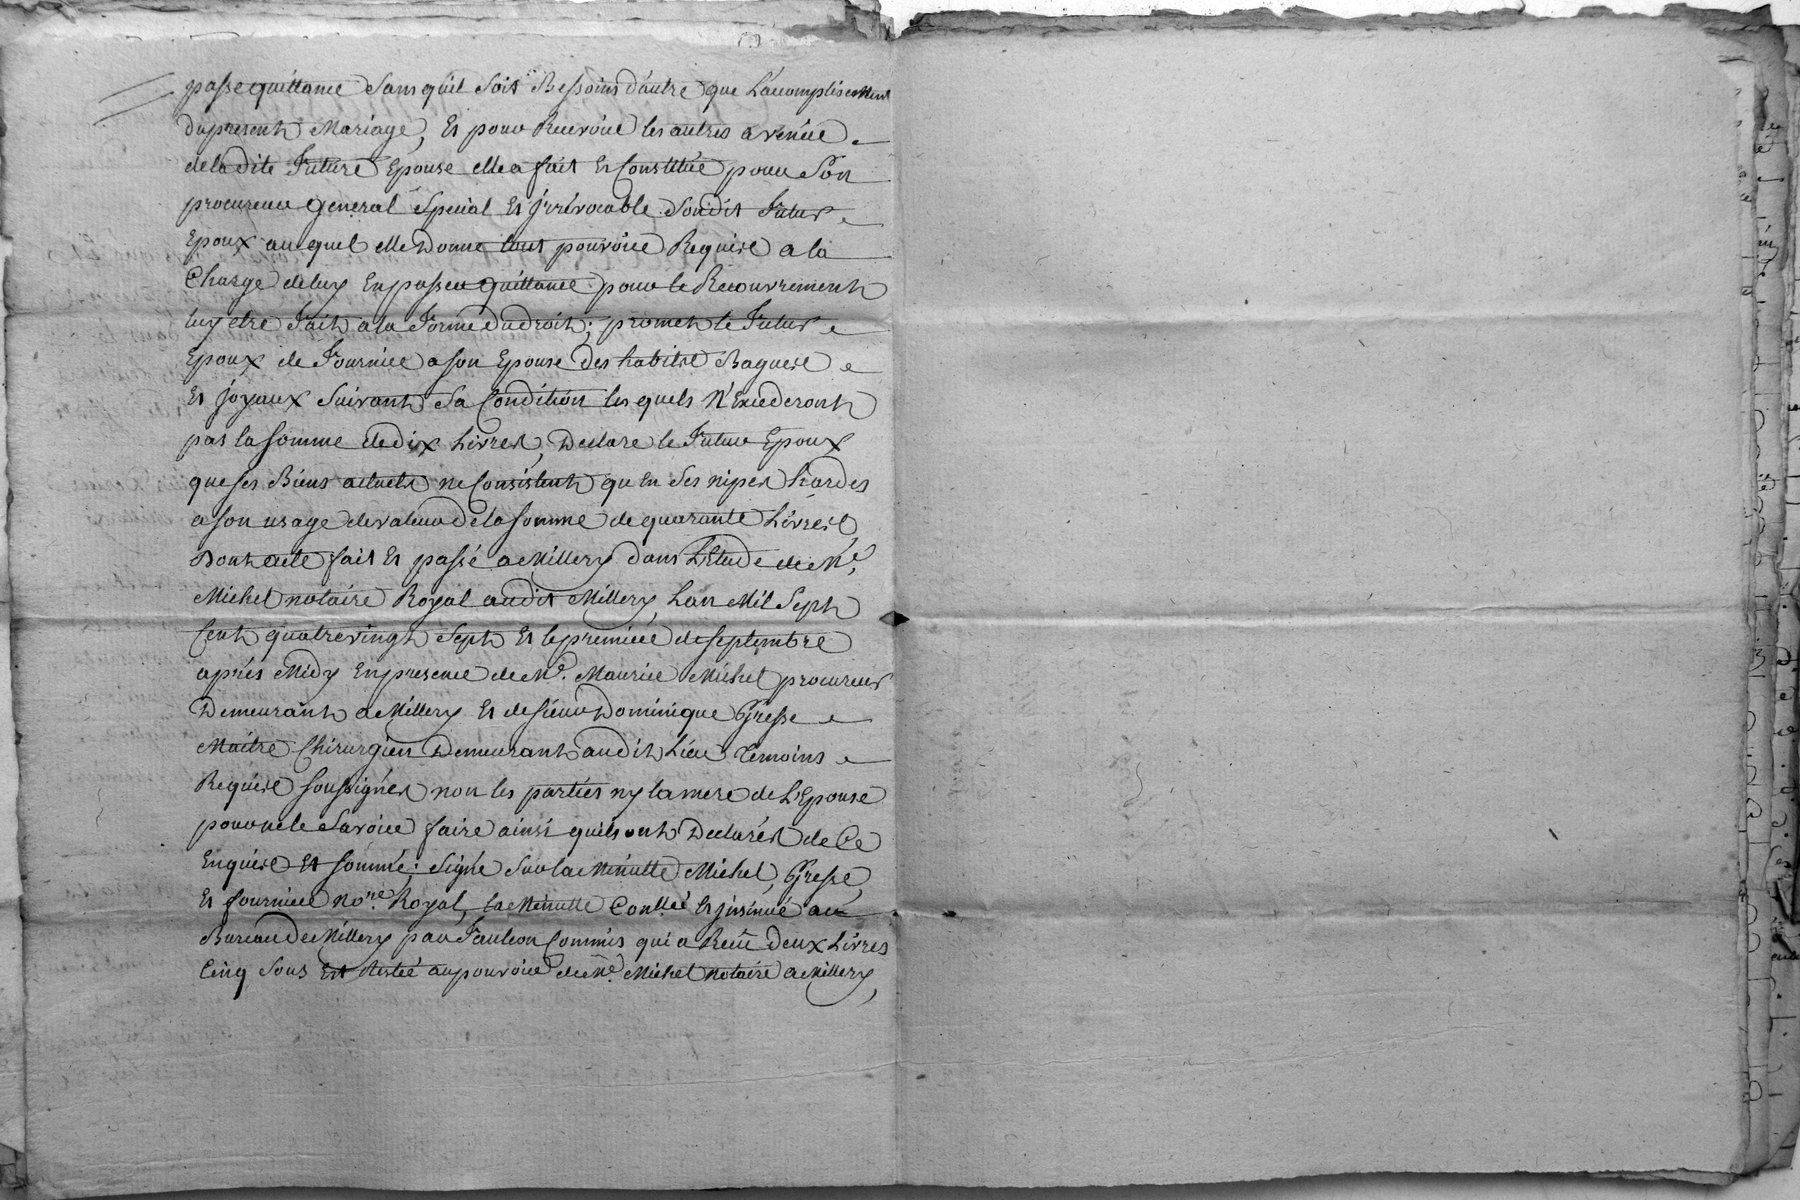 passe quittance sans quil soit Bessoins d'autre que L'accomplissement
du present Mariage, Et pour Recevoir les autres a venue
de la dite Future Epouse elle a fait Et Constitué pour Son
procureur general Special Et jrrévocable Sondit Futur
Epoux au quel elle Donne tout pouvoire Requise a la
Charge de luy En passer quittance pour le Recouvrement
luy etre Fait a la Forme du droit; promet le Futur
Epoux de Fournir a son Epouse des habits Bagues
Et joyaux Suivant Sa Condition les quels N'Excederont
pas la somme de dix Livres, Declare le Futur Epoux
que ses Biens actuels ne Consistent qu'en Ses nipes hardes
a son usage de valeur de la somme de quarante Livres
Dont acte fait Et passé a Millery dans L'Etude de Me.
Michel notaire Royal audit Millery, Lan Mil Sept
Cent quatrevingt Sept Et le premiere de septembre
aprés Midy En presence de Me. Maurice Michel procureur
Demeurant a Millery Et de sieur Dominique Gresse
Maitre Chirurgien Demeurant audit Lieu Temoins
Requise soussignés non les parties ny la mere de L'Epouse
pour ne le Savoire faire ainsi quils ont Declarés de Ce
Enquise Et sommé; Signé Sur la Minutte Michel, Gresse,
Et fourniere Nore. Royal, la Minutte Conllée Et jnsinué au
Bureau de Millery par Fauleon Commis qui a Recu Deux Livres
Cinq Sous Est Resté au pouvoire de Me. Michel Notaire a Millery,